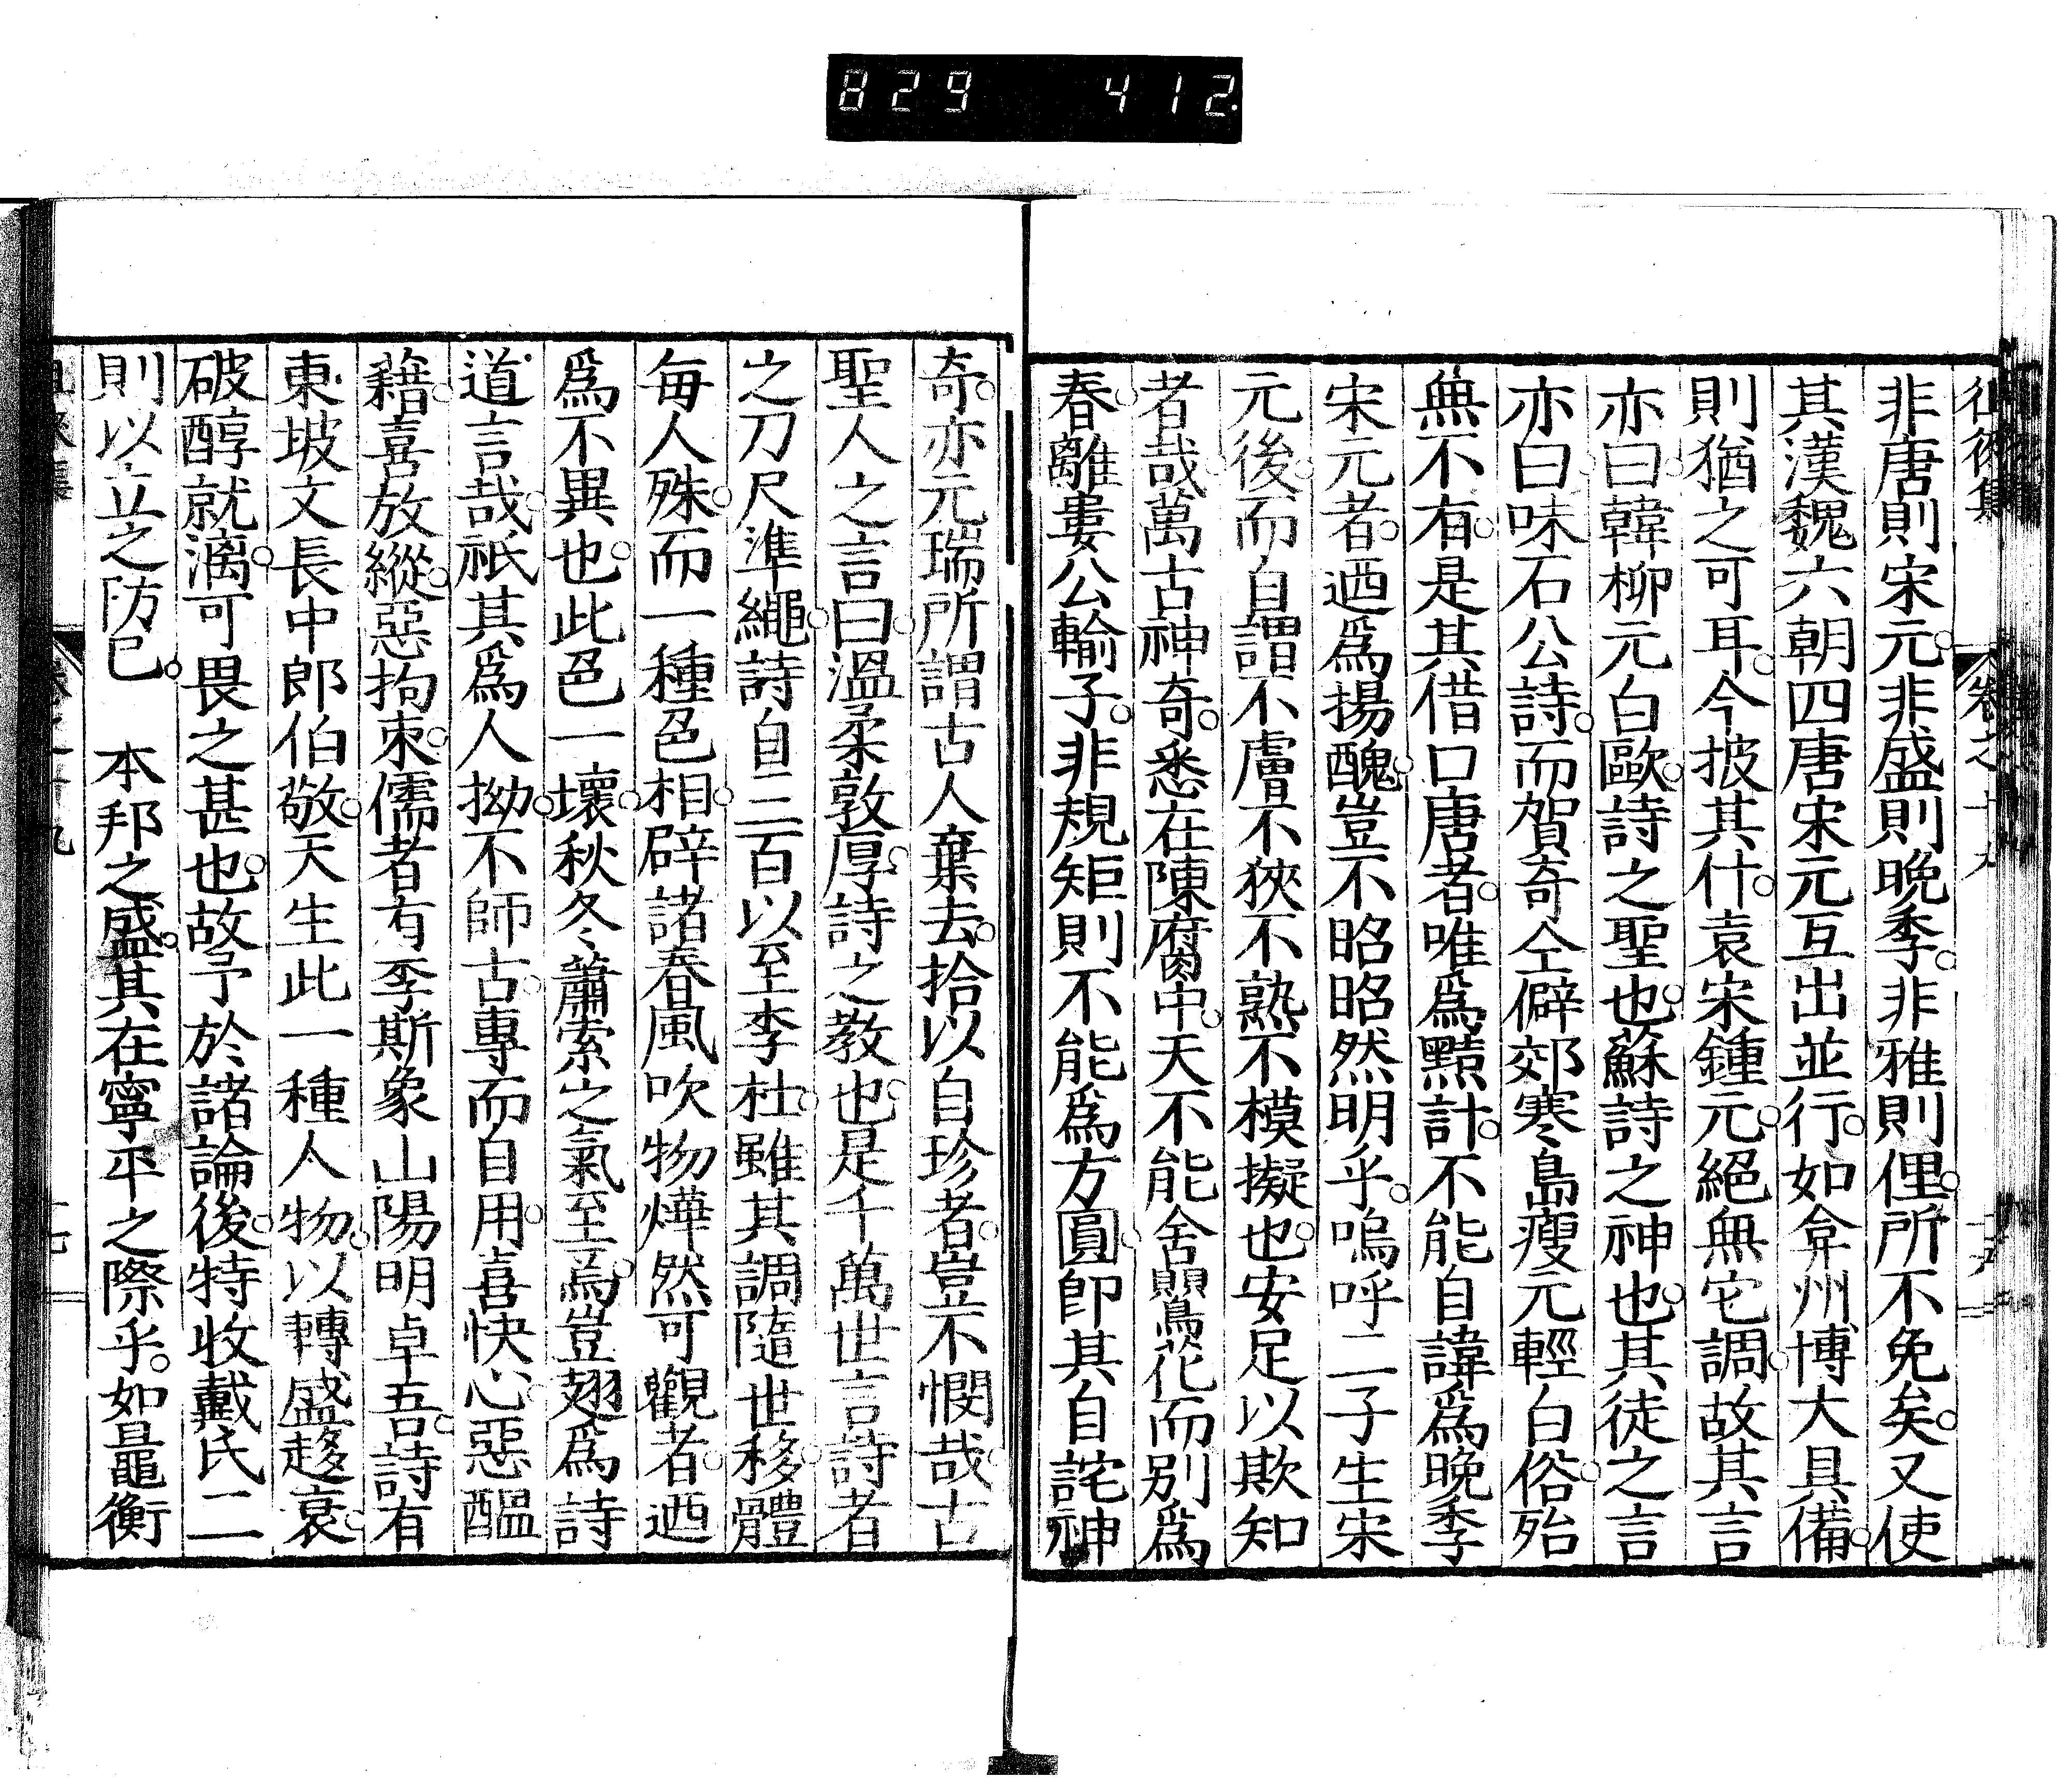 829 412
徂徠集 卷之十九
非唐則宋元。非盛則晚季。非雅則俚。所不免矣。又使
其漢魏六朝四唐宋元互出並行。如弇州博大具備。
則猶之可耳。今披其什。袁宋鍾元。絕無它調。故其言
亦曰。韓柳元白歐。詩之聖也。蘇詩之神也。其徒之言
亦曰。味石公詩。而賀奇仝僻郊寒島瘦元輕白俗。殆
無不有。是其借口唐者。唯爲黠計。不能自諱爲晚季
宋元者。迺爲揚醜。豈不昭昭然明乎。嗚呼二子生宋
元後。而自謂不膚不狹不熟不模擬也。安足以欺知
者哉。萬古神奇。悉在陳腐中。天不能舍鶪花而別爲
春。離婁公輸子。非規矩則不能爲方圓。卽其自詫神
奇。亦元瑞所謂古人棄去。拾以自珍者。豈不憫哉。古
聖人之言曰。溫柔敦厚。詩之教也。是千萬世言詩者
之刀尺準繩。詩自三百以至李杜。雖其調隨世移。體
每人殊。而一種色相。辟諸春風吹物燁然可觀者。迺
爲不異也。此色一壞。秋冬蕭索之氣至焉。豈翅爲詩
道言哉。祇其爲人拗。不師古。專而自用。喜快心。惡醞
藉。喜放縱。惡拘束。儒者有李斯象山陽明卓吾。詩有
東坡文長中郎伯敬。天生此一種人物。以轉盛趍衰。
破醇就漓。可畏之甚也。故予於諸論後。特收戴氏二
則以立之防已。 本邦之盛。其在寧平之際乎。如鼂衡